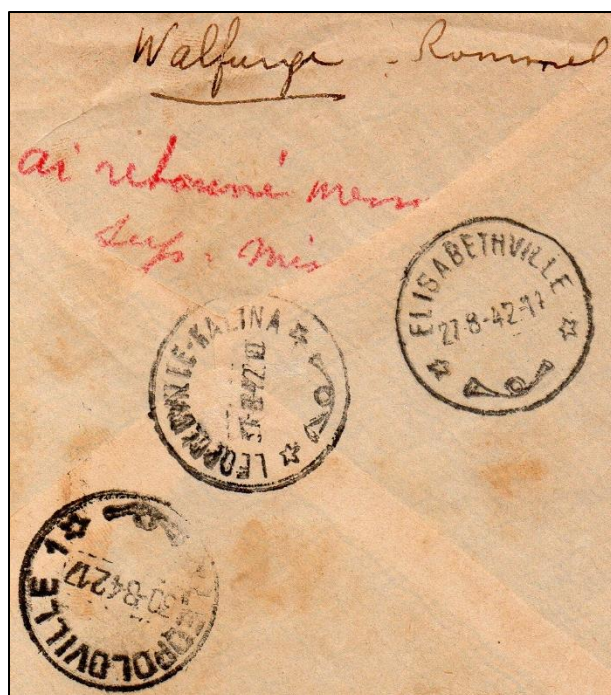 Walfunga - Rommel
ai retourné mens
sup. mis
ELISABETHVILLE
27-8-42-17
LEOPOLDVILLE-KALINA
31-8-42 10
LEOPOLDVILLE 1
30-8-42 17